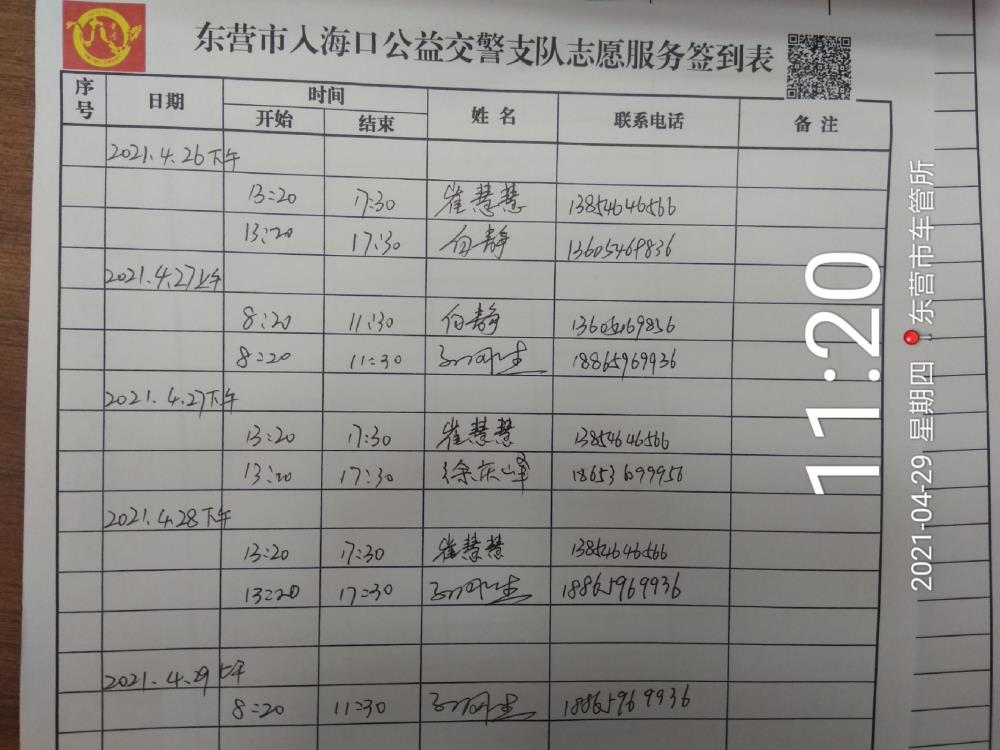 东营市入海口公益交警支队志愿服务签到表
序号 日期 时间 姓名 联系电话 备注
开始 结束
2021.4.26下午
13:20 17:30 崔慧慧 13854646566
13:20 17:30 白静 13605469836
2021.4.27上午
8:20 11:30 白静 13605469836
8:20 11:30 18865969936
2021.4.27下午
13:20 17:30 崔慧慧 13854646566
13:20 17:30 徐庆峰 18653699956
2021.4.28下午
13:20 17:30 崔慧慧 13854646566
13:20 17:30 18865969936
2021.4.29上午
8:20 11:30 18865969936
11:20
2021-04-29 星期四 东营市车管所